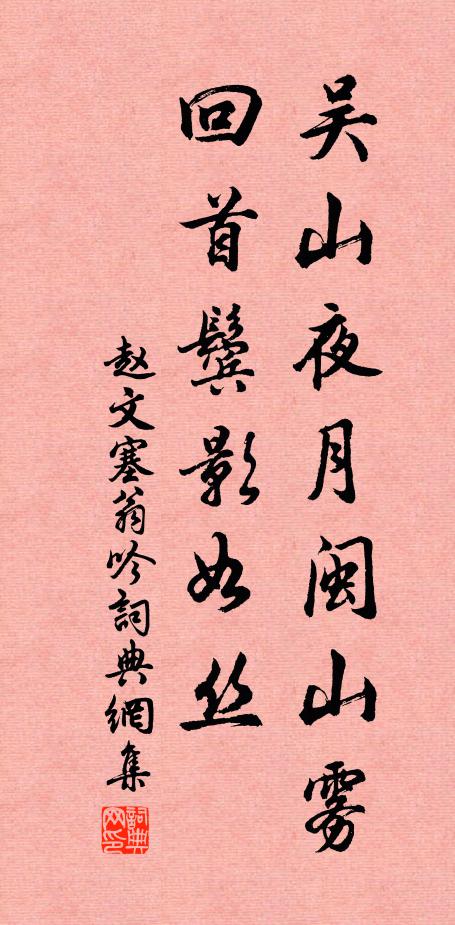 吴山夜月闽山雾
回首鬓影如丝
赵文塞翁吟詞典網集
詞典网印